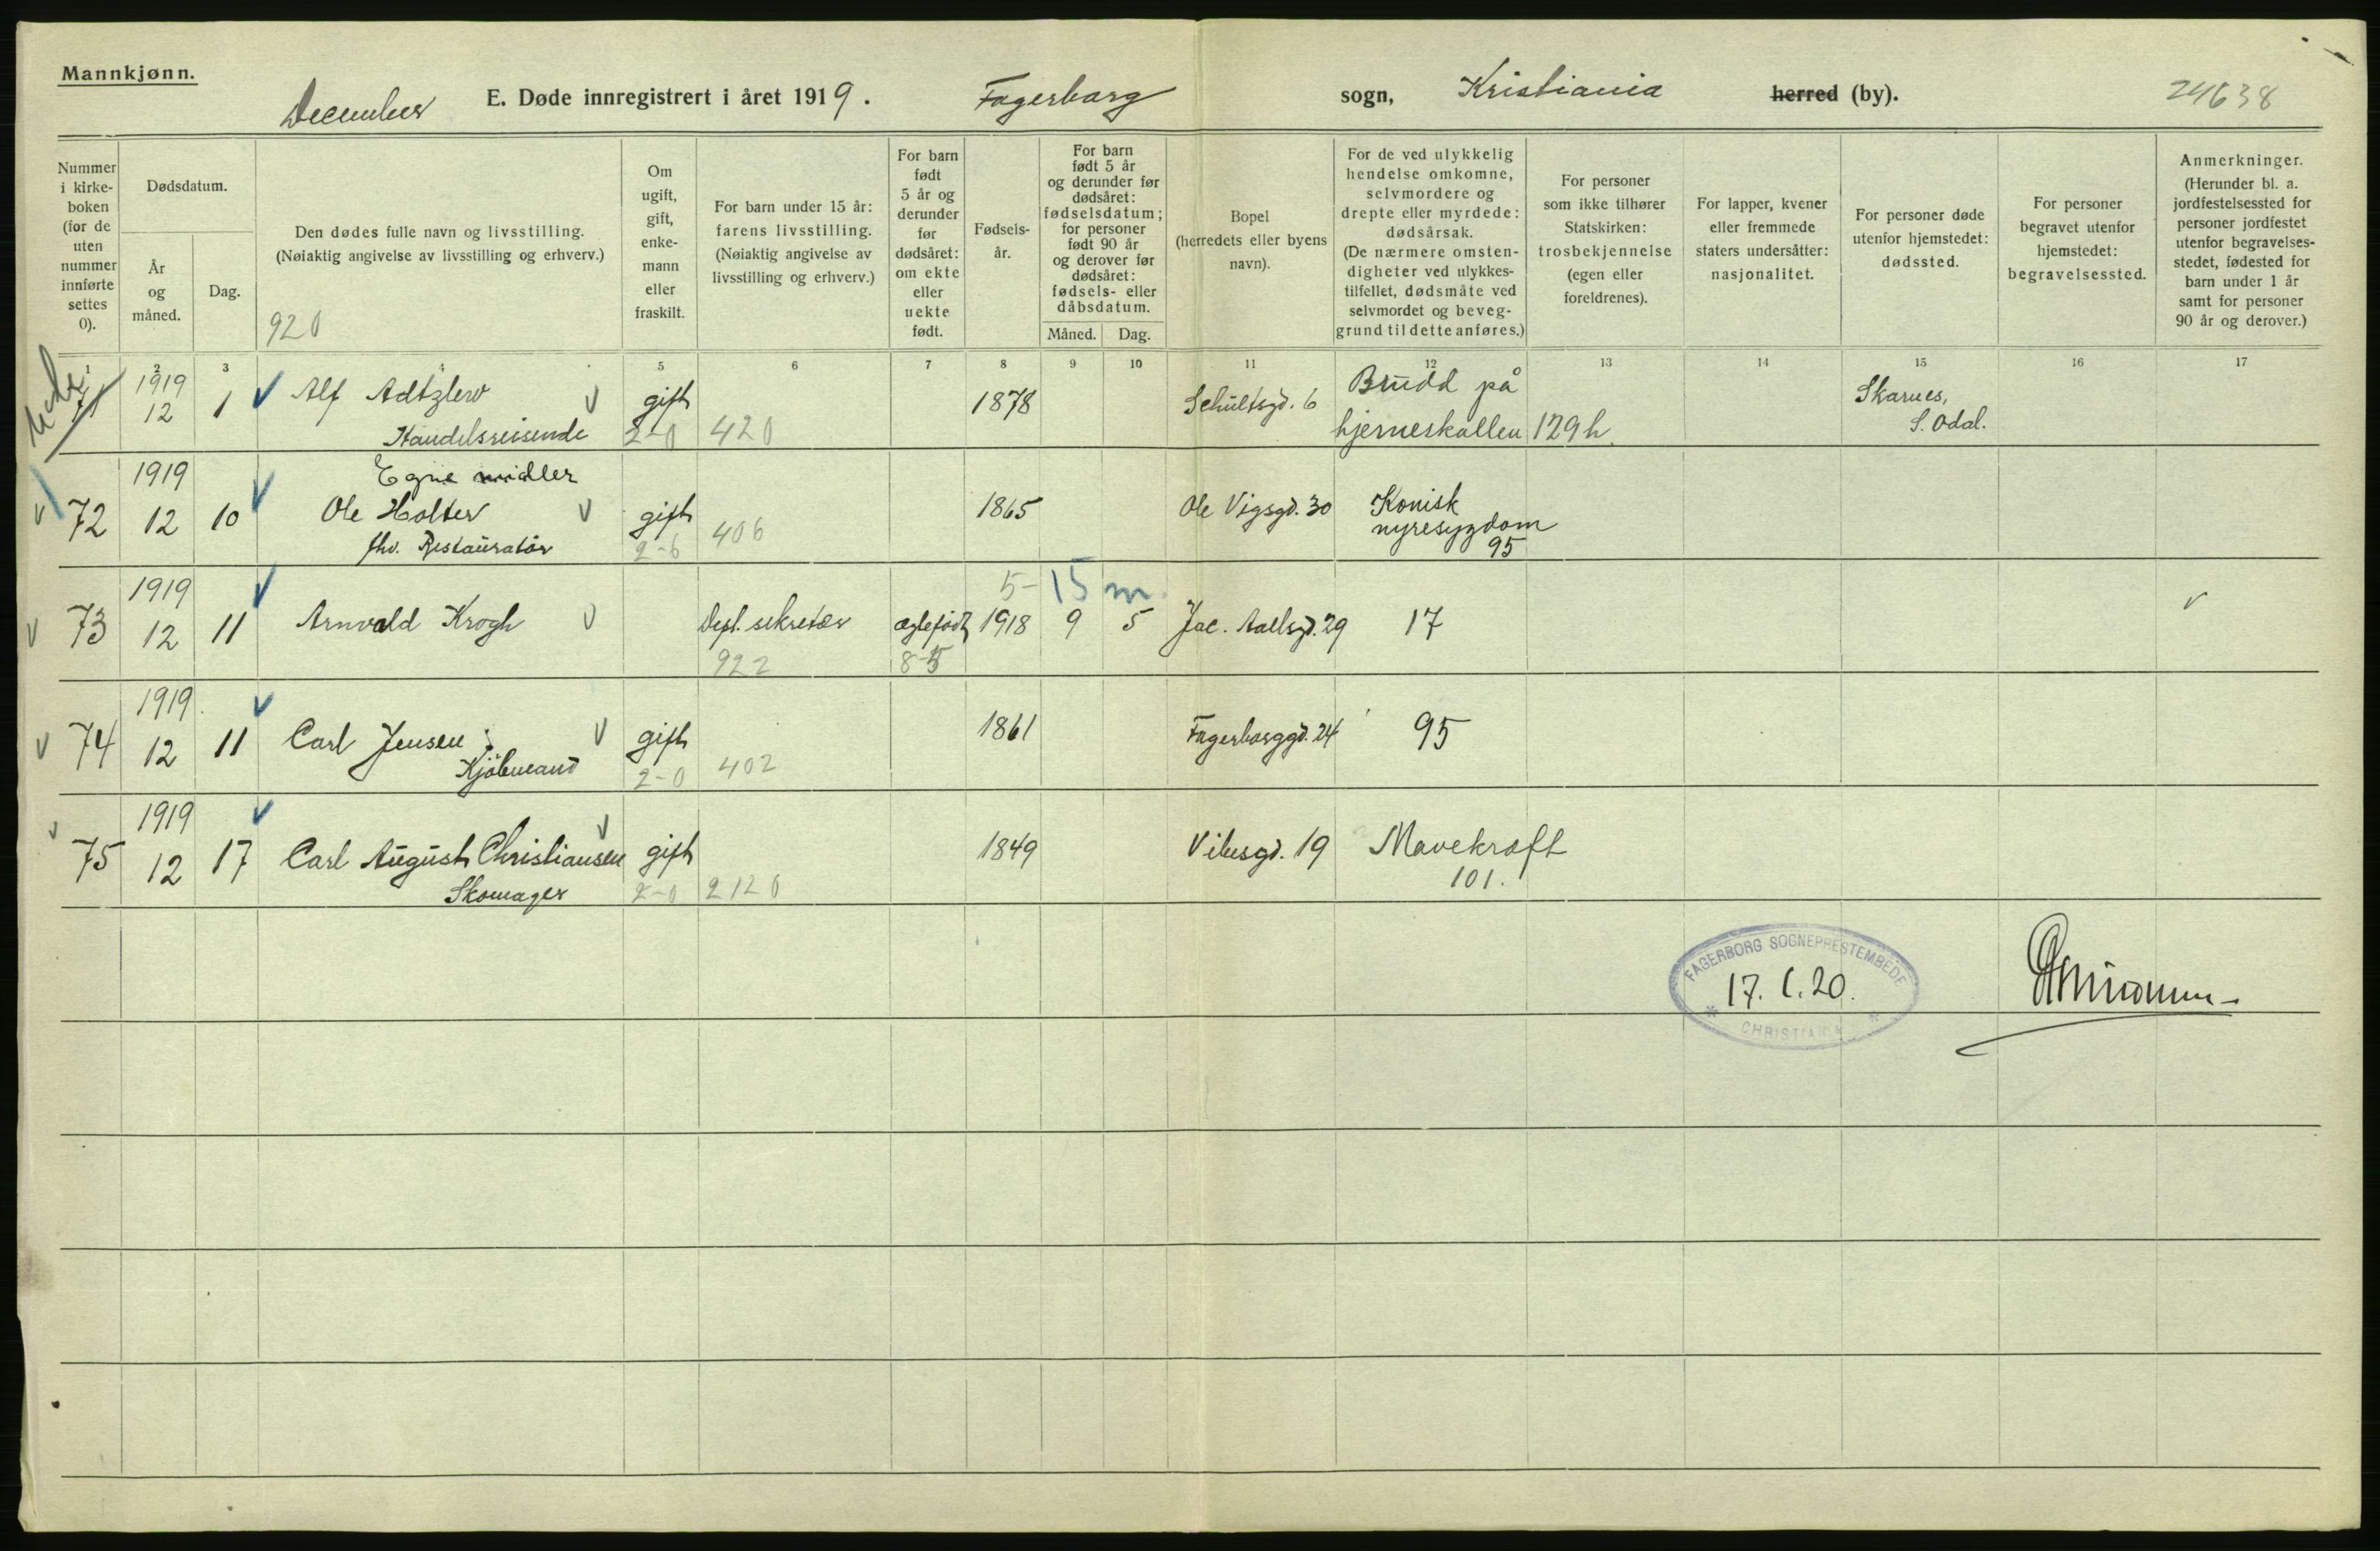 Mannkjønn.
December E. Døde innregistrert i året 1919. Fagerborg sogn, Kristiania herred (by). 24638
Nummer i kirke-boken (for de uten nummer innførte settes 0).
Dødsdatum.
År og måned.
Dag.
Den dødes fulle navn og livsstilling.
(Nøiaktig angivelse av livsstilling og erhverv.)
920
Om ugift, gift, enke-mann eller fraskilt.
For barn under 15 år: farens livsstilling.
(Nøiaktig angivelse av livsstilling og erhverv.)
For barn født 5 år og derunder før dødsåret: om ekte eller uekte født.
Fødsels-år.
For barn født 5 år og derunder før dødsåret: fødselsdatum; for personer født 90 år og derover før dødsåret: fødsels- eller dåbsdatum.
Måned. Dag.
Bopel (herredets eller byens navn).
For de ved ulykkelig hendelse omkomne, selvmordere og drepte eller myrdede: dødsårsak.
(De nærmere omsten-digheter ved ulykkes-tilfellet, dødsmåte ved selvmordet og beveg-grund til dette anføres.)
For personer som ikke tilhører Statskirken: trosbekjennelse (egen eller foreldrenes).
For lapper, kvener eller fremmede staters undersåtter: nasjonalitet.
For personer døde utenfor hjemstedet: dødssted.
For personer begravet utenfor hjemstedet: begravelsessted.
Anmerkninger.
(Herunder bl. a. jordfestelsessted for personer jordfestet utenfor begravelses-stedet, fødested for barn under 1 år samt for personer 90 år og derover.)
1 2 3 4 5 6 7 8 9 10 11 12 13 14 15 16 17
71 1919 12 1 Alf Adtzlew gift 1878 Schultsgd. 6 Brudd på Skarnes,
Handelsreisende 2-0 420 hjerneskallen 129 h. S. Odal.
Egne midler
72 1919 12 10 Ole Holter gift 406 1865 Ole Vigsgd. 30 Konisk
fhv. Restauratør 2-6 nyresygdom
95
5- 15 m.
73 1919 12 11 Arnvald Krogh Depl. sekretær ægtefødt 1918 9 5 Jac. Aallsgd. 29 17
922 8-5
74 1919 12 11 Carl Jensen gift 1861 Fagerborggd. 24 95
Kjöbmand 2-0 402
75 1919 12 17 Carl August Christiansen gift 1849 Vibesgd. 19 Mavekræft
Skomager 2-0 2120 101.
FAGERBORG SOGNEPRESTEMBEDE
17. 1. 20.
CHRISTIANIA